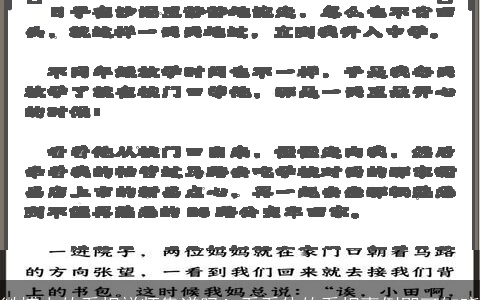 日子在沙漏里静静地流走，怎么也不肯回
头，就这样一天天地过，直到我升入中学。
不同年级放学时间也不一样，于是我每天
放学了就在校门口等他，那是一天里最开心
的时候！
看着他从校门口出来，慢慢走向我，然后
牵着我的
过马路去吃学校对面的那家甜
品店上市的新品点心，再一起去坐那
到不能再熟悉的 路公交车回家。
一进院子，两位妈妈就在家门口朝着马路
的方向张望，一看到我们回来就去接我们背
上的书包。这时候我妈总说：“诶，小田啊，